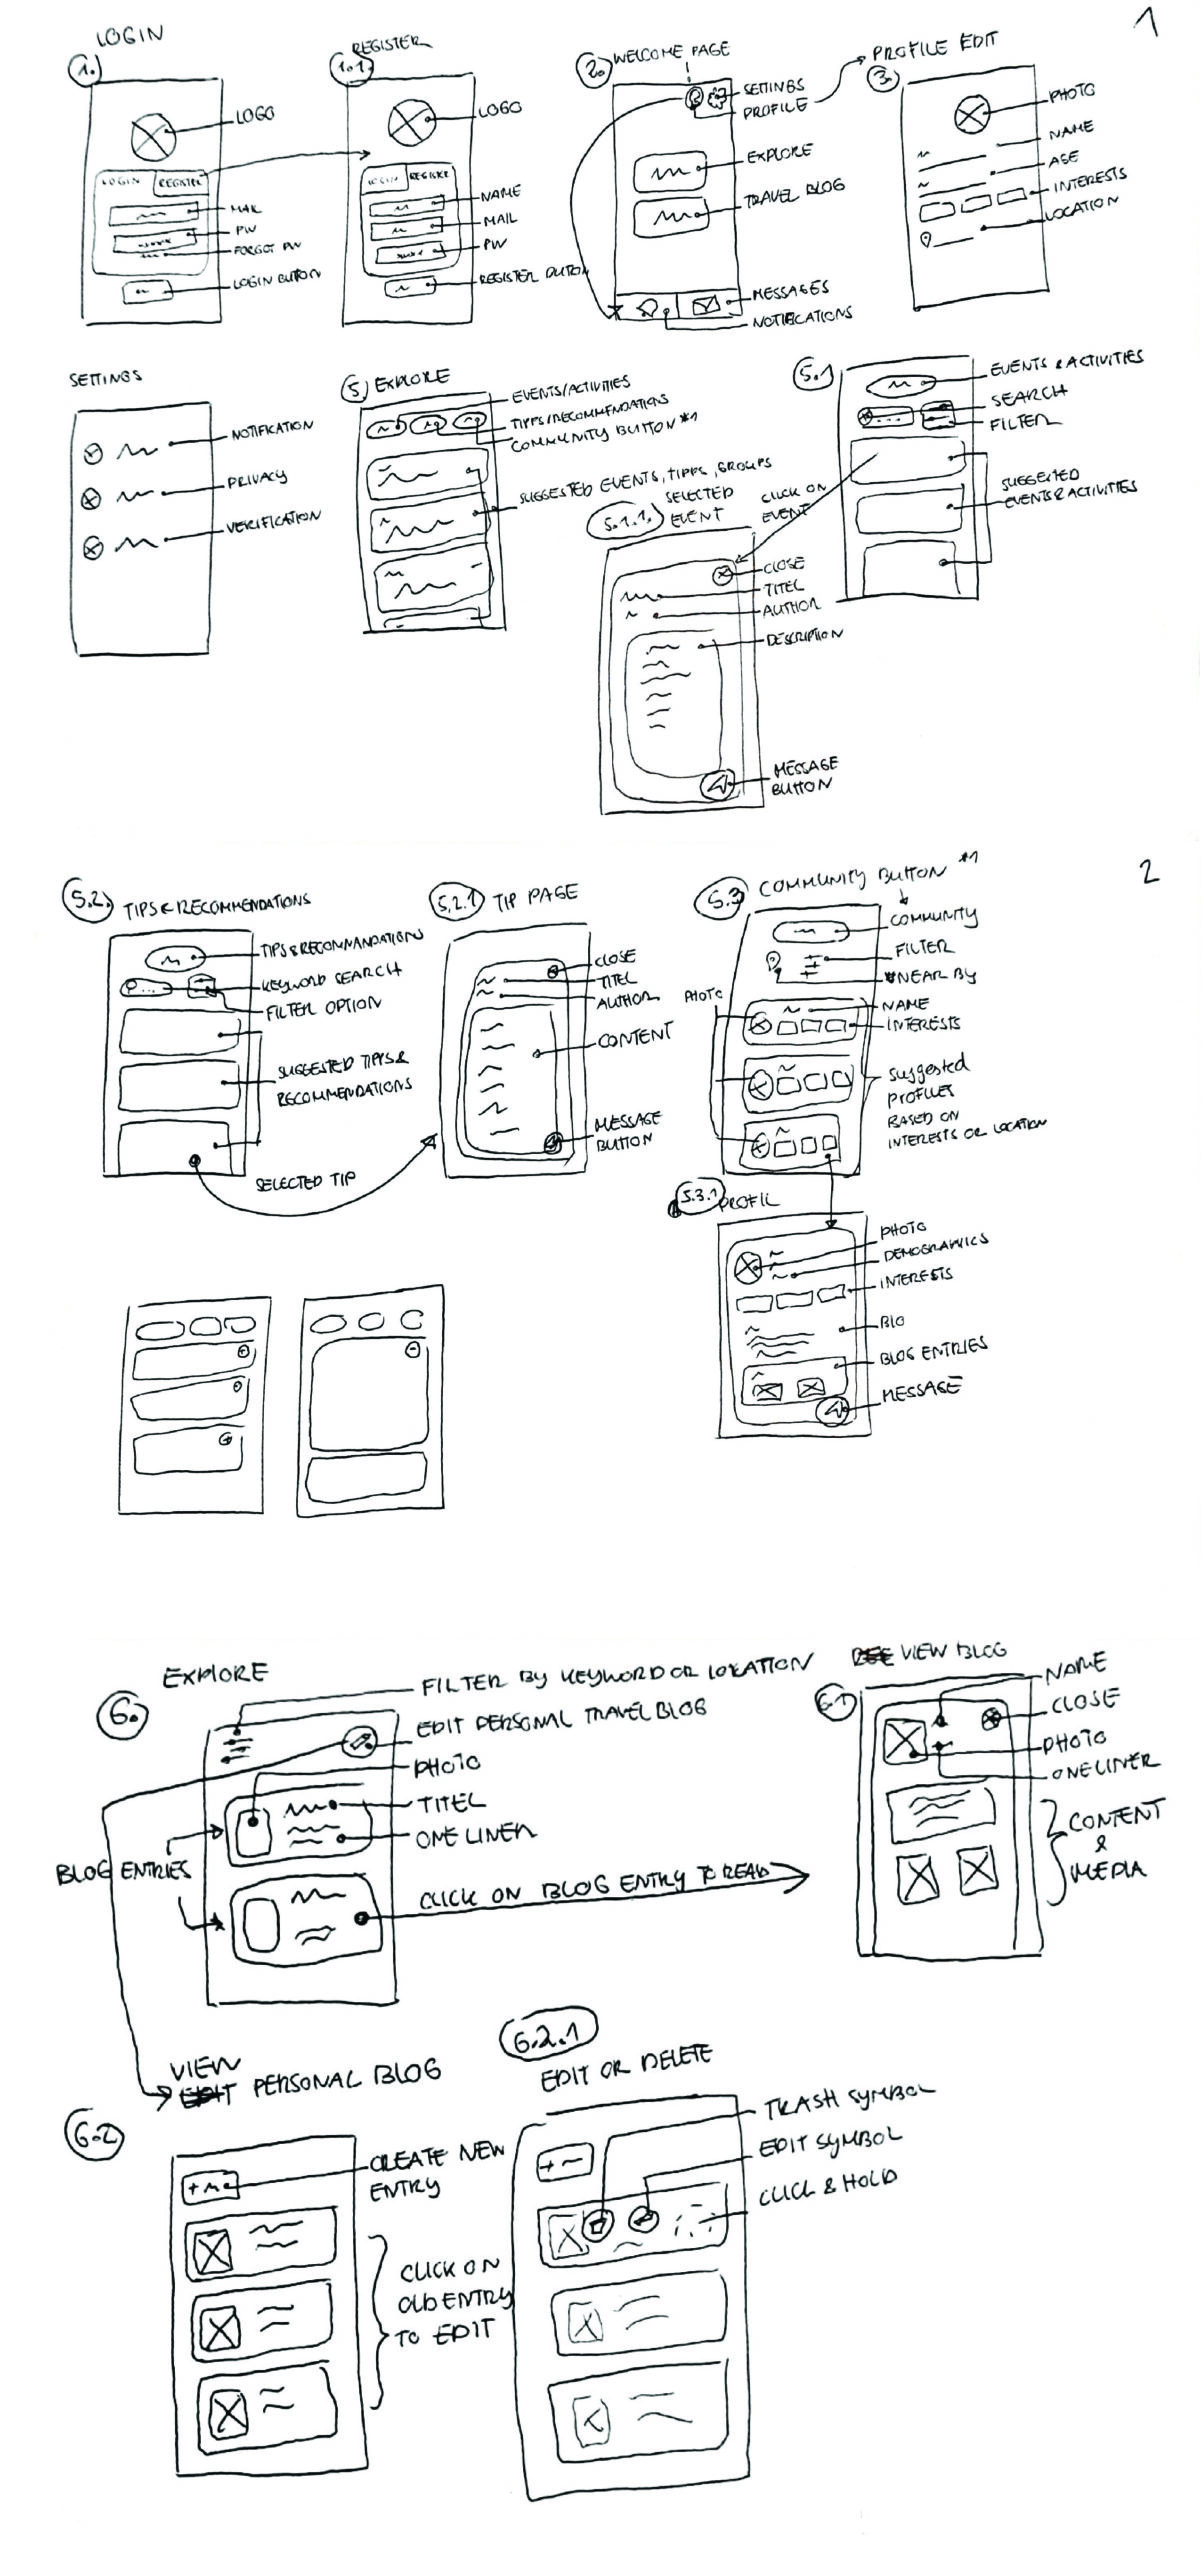 1
LOGIN
1.
LOGO
LOGIN
REGISTER
MAIL
PW
FORGOT PW
LOGIN BUTTON
REGISTER
1.1.
LOGO
LOGIN
REGISTER
NAME
MAIL
PW
REGISTER BUTTON
2. WELCOME PAGE
SETTINGS
PROFILE
EXPLORE
TRAVEL BLOG
MESSAGES
NOTIFICATIONS
PROFILE EDIT
3.
PHOTO
NAME
AGE
INTERESTS
LOCATION
SETTINGS
NOTIFICATION
PRIVACY
VERIFICATION
5. EXPLORE
EVENTS/ACTIVITIES
TIPPS/RECOMMENDATIONS
COMMUNITY BUTTON *1
SUGGESTED EVENTS, TIPPS, GROUPS
5.1
EVENTS & ACTIVITIES
SEARCH
FILTER
SUGGESTED
EVENTS & ACTIVITIES
CLICK ON
EVENT
5.1.1.
SELECTED
EVENT
CLOSE
TITEL
AUTHOR
DESCRIPTION
MESSAGE
BUTTON
2
5.2. TIPS & RECOMMENDATIONS
TIPS & RECOMMANDATIONS
KEYWORD SEARCH
FILTER OPTION
SUGGESTED TIPPS &
RECOMMENDATIONS
SELECTED TIP
5.2.1 TIP PAGE
CLOSE
TITEL
AUTHOR
CONTENT
MESSAGE
BUTTON
5.3 COMMUNITY BUTTON *1
COMMUNITY
FILTER
NEAR BY
PHOTO
NAME
INTERESTS
Suggested
PROFILES
BASED ON
INTERESTS OR LOCATION
5.3.1 PROFIL
PHOTO
DEMOGRAPHICS
INTERESTS
BIO
BLOG ENTRIES
MESSAGE
6. EXPLORE
FILTER BY KEYWORD OR LOCATION
EDIT PERSONAL TRAVEL BLOG
PHOTO
TITEL
ONE LINER
BLOG ENTRIES
CLICK ON BLOG ENTRY TO READ
VIEW BLOG
6.1
NAME
CLOSE
PHOTO
ONE LINER
CONTENT
&
MEDIA
VIEW
EDIT PERSONAL BLOG
6.2
CREATE NEW
ENTRY
CLICK ON
OLD ENTRY
TO EDIT
6.2.1
EDIT OR DELETE
TRASH SYMBOL
EDIT SYMBOL
CLICK & HOLD